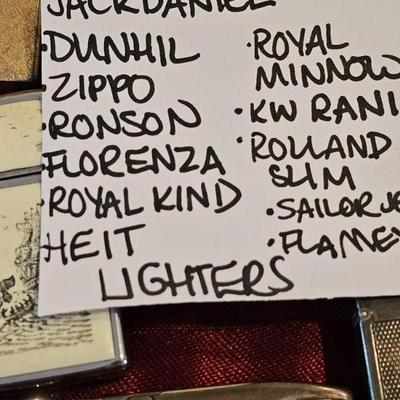 JACK DANIEL
·DUNHIL
·ZIPPO
·RONSON
·FLORENZA
·ROYAL KIND
HEIT
·ROYAL
MINNOW
·KW RANI
·ROLLAND
SLIM
·SAILOR JE
·FLAME
LIGHTERS